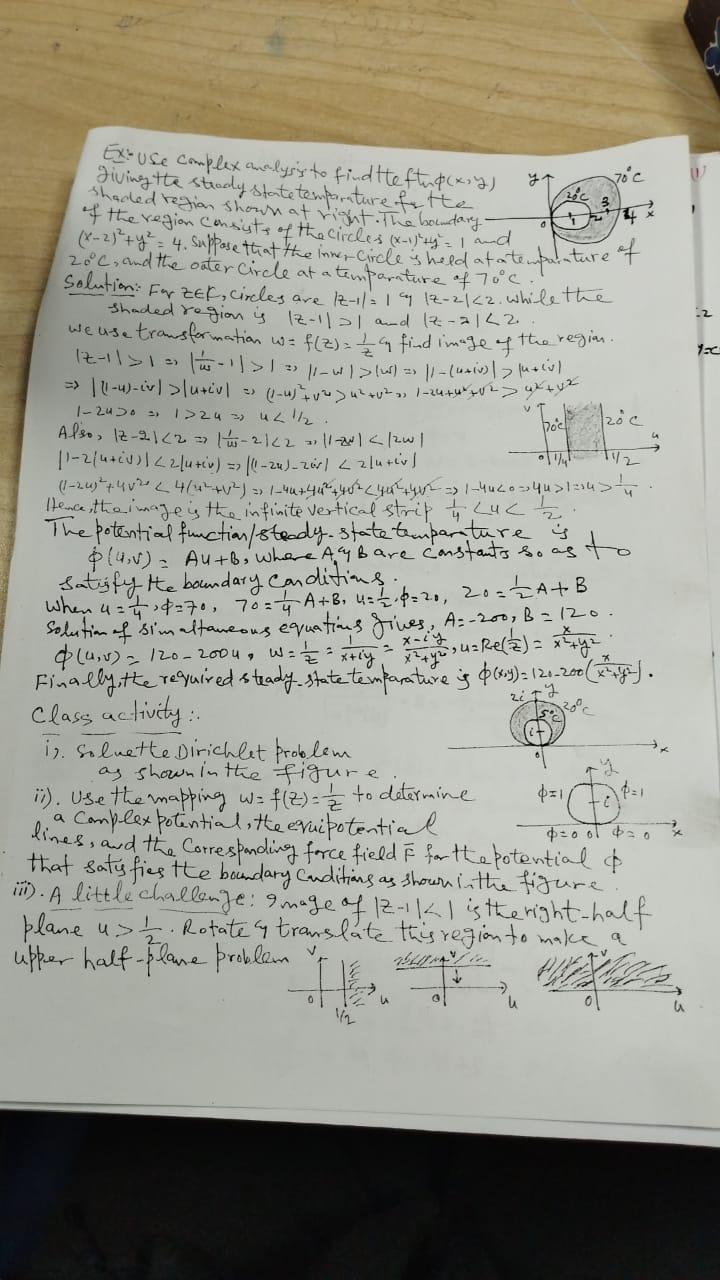 Ex:- Use Complex analysis to find the ftn φ(x,y)
giving the steady state temparature for the
shaded region shown at right. The boundary
of the region consists of the circles (x-1)²+y²=1 and
(x-2)²+y²=4. Suppose that the inner circle is held at a temparature of
20°C, and the outer Circle at a temparature of 70°C.
y
20°C
70°C
0 1 2 3 4 x
Solution:- For z∈ , circles are |z-1|=1 & |z-2|<2. while the
shaded region is |z-1|>1 and |z-2|<2.
we use transformation w=f(z)=1/z & find image of the region.
|z-1|>1 => |1/w-1|>1 => |1-w|>|w| => |1-(u+iv)|>|u+iv|
=> |(1-u)-iv|>|u+iv| => (1-u)²+v²>u²+v² => 1-2u+u²+v²>u²+v²
1-2u>0 => 1>2u => u<1/2.
v
70°C
20°C
0 1/4 1/2 u
Also, |z-2|<2 => |1/w-2|<2 => |1-2w|<|2w|
|1-2(u+iv)|<2|u+iv| => |(1-2u)-2iv|<2|u+iv|
(1-2u)²+4v²<4(u²+v²) => 1-4u+4u²+4v²<4u²+4v² => 1-4u<0 => 4u>1 => u>1/4.
Hence, the image is the infinite vertical strip 1/4<u<1/2.
The potential function/steady-state temparature is
φ(u,v) = Au+B, where A & B are Constants so as to
satisfy the boundary Conditions.
When u=1/4, φ=70, 70=1/4A+B, u=1/2, φ=20, 20=1/2A+B
Solution of simultaneous equations gives, A=-200, B=120.
φ(u,v)=120-200u, w=1/z=1/x+iy=x-iy/x²+y², u=Re(1/z)=x/x²+y²
Finally, the required steady-state temparature is φ(x,y)=120-200(x/x²+y²).
Class activity:.
i). Solve the Dirichlet problem
as shown in the figure.
2i y
5°C
20°C
i
0 x
ii). Use the mapping w=f(z)=1/z to determine
a Complex potential, the equipotential
lines, and the Corresponding force field F for the potential φ
that satisfies the boundary Conditions as shown in the figure.
y
φ=1 i φ=1
φ=0 0 φ=0 x
iii). A little challenge: image of |z-1|<1 is the right-half
plane u>1/2. Rotate & translate this region to make a
upper half-plane problem
v
0 1/2 u
v
0 u
v
0 u